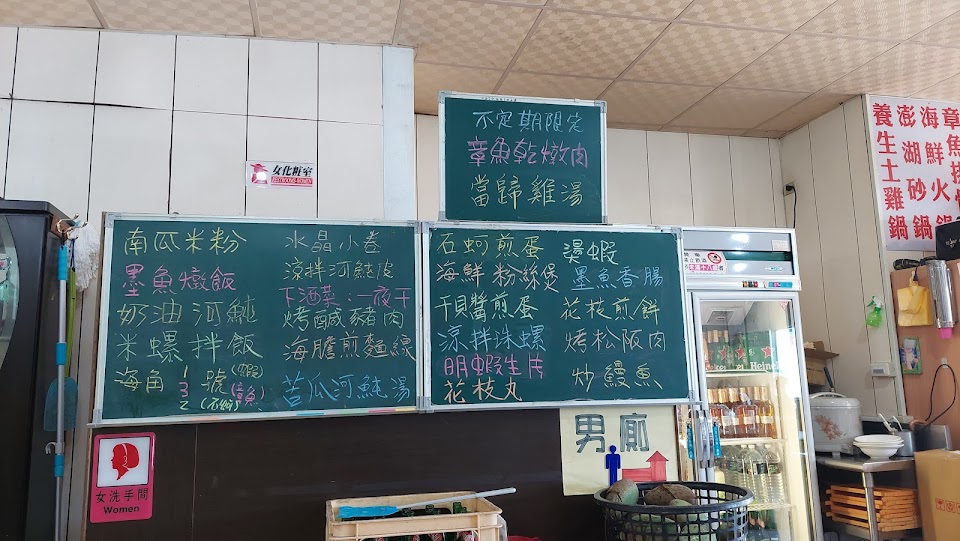 不定期限定
章魚乾燉肉
當歸雞湯
女化粧室
RESTROOMS-WOMEN
南瓜米粉
墨魚燉飯
奶油河魨
米螺拌飯
海角 1 號(蝦)
3 (章魚)
2 (石蚵)
水晶小卷
涼拌河魨皮
下酒菜:一夜干
烤鹹豬肉
海膽煎麵線
苦瓜河魨湯
石蚵煎蛋
海鮮粉絲煲
干貝醬煎蛋
涼拌珠螺
明蝦生片
花枝丸
燙蝦
墨魚香腸
花枝煎餅
烤松阪肉
炒鰻魚
養生土雞鍋
澎湖砂鍋
海鮮火鍋
章魚
男廁
女洗手間
Women